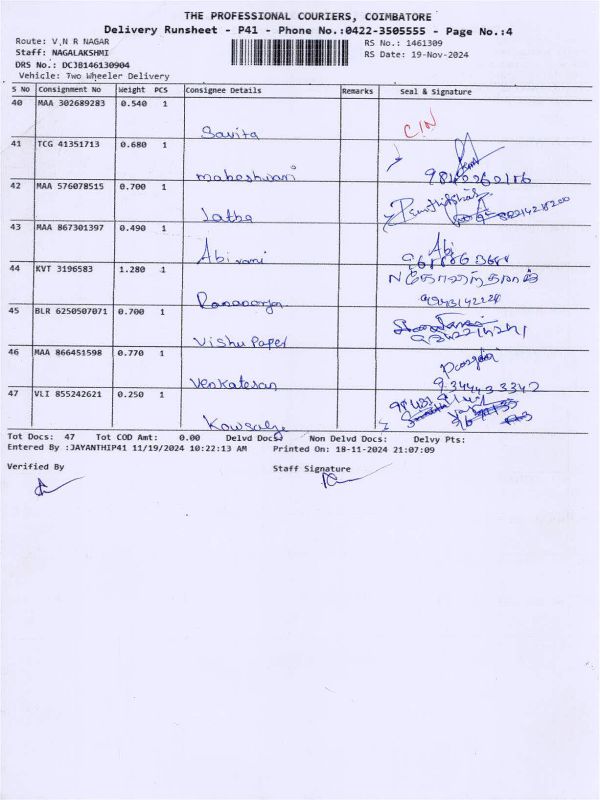 THE PROFESSIONAL COURIERS, COIMBATORE
Delivery Runsheet - P41 - Phone No.:0422-3505555 - Page No.:4
Route: V,N R NAGAR
RS No.: 1461309
Staff: NAGALAKSHMI
RS Date: 19-Nov-2024
DRS No.: DCJB146130904
Vehicle: Two Wheeler Delivery
S No Consignment No Weight PCS Consignee Details Remarks Seal & Signature
40 MAA 302689283 0.540 1
Savita C/N
41 TCG 41351713 0.680 1
Maheshwari
42 MAA 576078515 0.700 1
Latha
43 MAA 867301397 0.490 1 Abi
Abirami
44 KVT 3196583 1.280 1
9943142228
45 BLR 6250507071 0.700 1
Vishu Paper
46 MAA 866451598 0.770 1
Venkatesan 9344433342
47 VLI 855242621 0.250 1
Kowsalye
Tot Docs: 47 Tot COD Amt: 0.00 Delvd Docs: Non Delvd Docs: Delvy Pts:
Entered By :JAYANTHIP41 11/19/2024 10:22:13 AM Printed On: 18-11-2024 21:07:09
Verified By Staff Signature